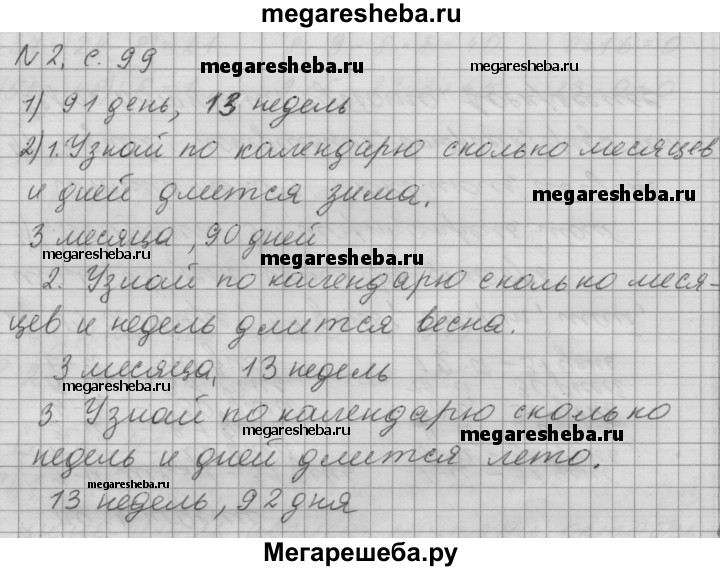 megaresheba.ru
N 2, с. 99
megaresheba.ru
megaresheba.ru
1) 91 день, 13 недель
2) 1. Узнай по календарю сколько месяцев
и дней длится зима.
megaresheba.ru
3 месяца, 90 дней
megaresheba.ru
megaresheba.ru
2. Узнай по календарю сколько меся-
цев и недель длится весна.
3 месяца, 13 недель
megaresheba.ru
3 Узнай по календарю сколько
megaresheba.ru
megaresheba.ru
недель и дней длится лето.
megaresheba.ru
13 недель, 92 дня
Мегарешеба.ру